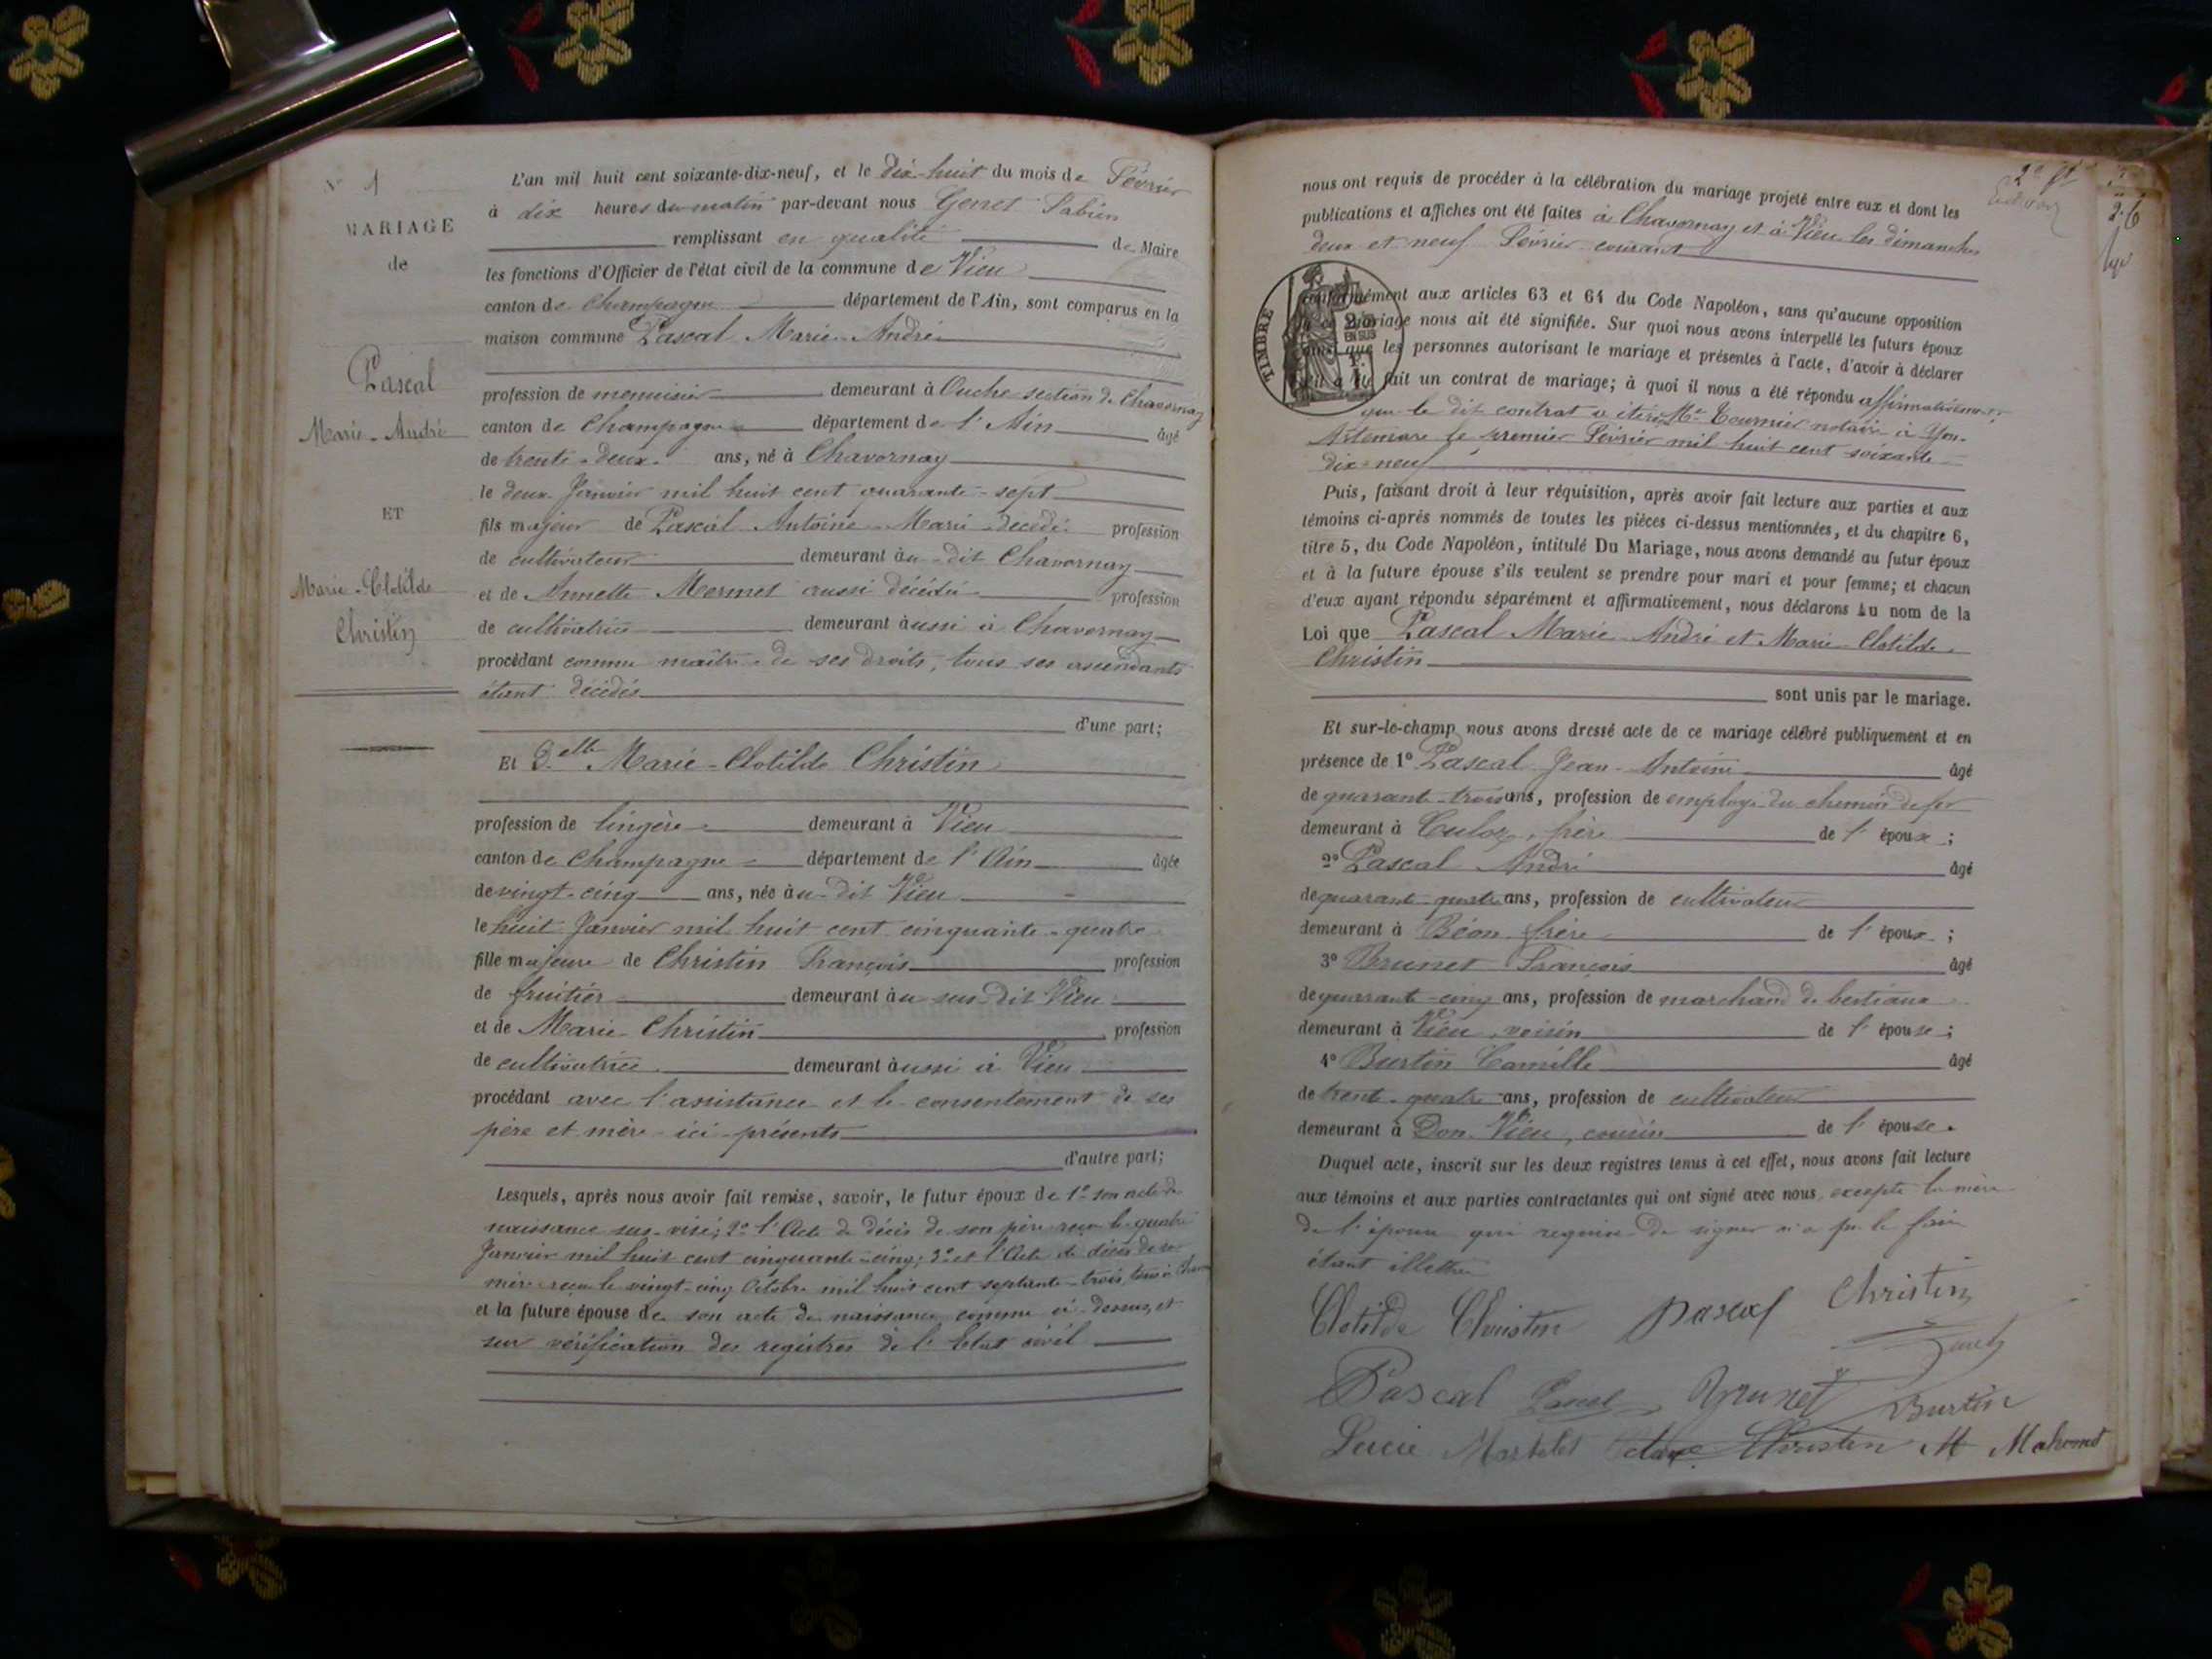 N° 1
MARIAGE
de
Pascal
Marie-André
ET
Marie-Clotilde
Christin
L'an mil huit cent soixante-dix-neuf, et le dix-huit du mois de Février
à dix heures du matin par-devant nous Genet Fabien
remplissant en qualité de Maire
les fonctions d'Officier de l'état civil de la commune de Vieu
canton de Champagne département de l'Ain, sont comparus en la
maison commune Pascal Marie-André
profession de menuisier demeurant à Ouche section de Chavornay
canton de Champagne département de l'Ain âgé
de trente-deux ans, né à Chavornay
le deux Janvier mil huit cent quarante-sept
fils majeur de Pascal Antoine-Marie décédé profession
de cultivateur demeurant au-dit Chavornay
et de Annette Mermet aussi décédée profession
de cultivatrice demeurant aussi à Chavornay
procédant comme maître de ses droits, tous ses ascendants
étant décédés
d'une part;
Et D.elle Marie-Clotilde Christin
profession de lingère demeurant à Vieu
canton de Champagne département de l'Ain âgée
de vingt-cinq ans, née au-dit Vieu
le huit Janvier mil huit cent cinquante-quatre
fille majeure de Christin François profession
de fruitier demeurant au sus-dit Vieu
et de Marie Christin profession
de cultivatrice demeurant aussi à Vieu
procédant avec l'assistance et le consentement de ses
père et mère ici présents
d'autre part;
Lesquels, après nous avoir fait remise, savoir, le futur époux de 1° son acte de
naissance sus-visé; 2° l'Acte de décès de son père reçu le quatre
Janvier mil huit cent cinquante-cinq; 3° et l'Acte de décès de sa
mère reçu le vingt-cinq Octobre mil huit cent septante-trois, tous à
et la future épouse de son acte de naissance comme ci-dessus, et
sur vérification des registres de l'Etat civil
nous ont requis de procéder à la célébration du mariage projeté entre eux et dont les
publications et affiches ont été faites à Chavornay et à Vieu les dimanches
deux et neuf Février courant
TIMBRE
conformément aux articles 63 et 64 du Code Napoléon, sans qu'aucune opposition
à ce mariage nous ait été signifiée. Sur quoi nous avons interpellé les futurs époux
ainsi que les personnes autorisant le mariage et présentes à l'acte, d'avoir à déclarer
s'il a été fait un contrat de mariage; à quoi il nous a été répondu affirmativement
que le dit contrat a été reçu Me Tournier notaire à Yon-
Artemare le premier Février mil huit cent soixante
dix-neuf
Puis, faisant droit à leur réquisition, après avoir fait lecture aux parties et aux
témoins ci-après nommés de toutes les pièces ci-dessus mentionnées, et du chapitre 6,
titre 5, du Code Napoléon, intitulé Du Mariage, nous avons demandé au futur époux
et à la future épouse s'ils veulent se prendre pour mari et pour femme; et chacun
d'eux ayant répondu séparément et affirmativement, nous déclarons au nom de la
Loi que Pascal Marie-André et Marie-Clotilde
Christin
sont unis par le mariage.
Et sur-le-champ nous avons dressé acte de ce mariage célébré publiquement et en
présence de 1° Pascal Jean-Antoine âgé
de quarante-trois ans, profession de employé du chemin de fer
demeurant à Culoz, frère de l'époux;
2° Pascal André âgé
de quarante-quatre ans, profession de cultivateur
demeurant à Béon frère de l'époux;
3° Brunet François âgé
de quarante-cinq ans, profession de marchand de bestiaux
demeurant à Vieu, voisin de l'épouse;
4° Burtin Camille âgé
de trente-quatre ans, profession de cultivateur
demeurant à Don-Vieu, cousin de l'épouse.
Duquel acte, inscrit sur les deux registres tenus à cet effet, nous avons fait lecture
aux témoins et aux parties contractantes qui ont signé avec nous, excepté la mère
de l'épouse qui requise de signer n'a pu le faire
étant illettrée
Clotilde Christin Pascal Christin
Genet
Pascal Pascal Brunet Burtin
Lucie Martelet Christin M Mahomet